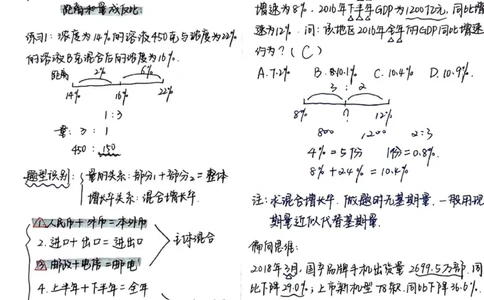 距离和量成反比
练习1:浓度为14%的溶液450克与浓度为22%
的溶液B克混合后的浓度为16%.
距离
2% 6%
14% 16% 22%
1:3
量: 3 : 1
450 : 150
题型识别:
量的关系:部分1+部分2=整体
增长率关系:混合增长率
1.人民币+外币=本外币
2.进口+出口=进出口
3.邮政+电信=邮电
4.上半年+下半年=全年
求混合
增速为8%. 2016年下半年GDP为1200亿元,同比增
速为12%. 问:该地区2016年全年的GDP同比增速
约为?( C )
A.7.2% B.10.1% C.10.4% D.10.9%.
3 : 2
8% ? 12%
800 1200 2:3
4%=5份 1份=0.8%.
8%+2.4%=10.4%
注:求混合增长率.做题时无基期量.一般用现
期量近似代替基期量.
2018年3月,国产品牌手机出货量2699.5万部,同
比下降29.0%;上市新机型78款,同比下降36.6%.